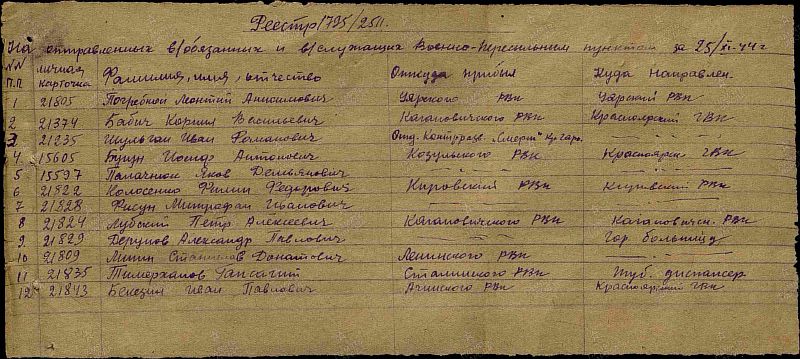 Реестр 1795/2511.
На отправленных в/обязанных и в/служащих Военно-пересыльным пунктом за 25/XI-44 г.
NN п.п личная карточка Фамилия, имя, отчество Откуда прибыл Куда направлен.
1 21805 Погребной Леонтий Анисимович Уярского РВк Уярский РВк
2 21374 Бабич Корнил Васильевич Кагановичского РВк Красноярский ГВк
3 21235 Шульган Иван Романович Отд. Контрразв. „Смерш" — „ —
4 15605 Бузун Иосиф Антонович Козульского РВк Красноярск ГВк
5 15597 Палачнюк Яков Демьянович — „ — — „ —
6 21822 Колосенко Филип Федорович Кировский РВк Кировский РВк
7 21828 Фисун Митрофан Иванович — „ — — „ —
8 21824 Лубский Петр Алексеевич Кагановичского РВк Кагановичск. РВк
9 21829 Дерунов Александр Павлович — „ — Гор. больница
10 21809 Митин Станислав Донатович Ленинского РВк — „ —
11 21835 Тимерханов Сталинского РВк Туб. диспансер
12 21843 Бекезин Иван Павлович Ачинского РВк Красноярский ГВк